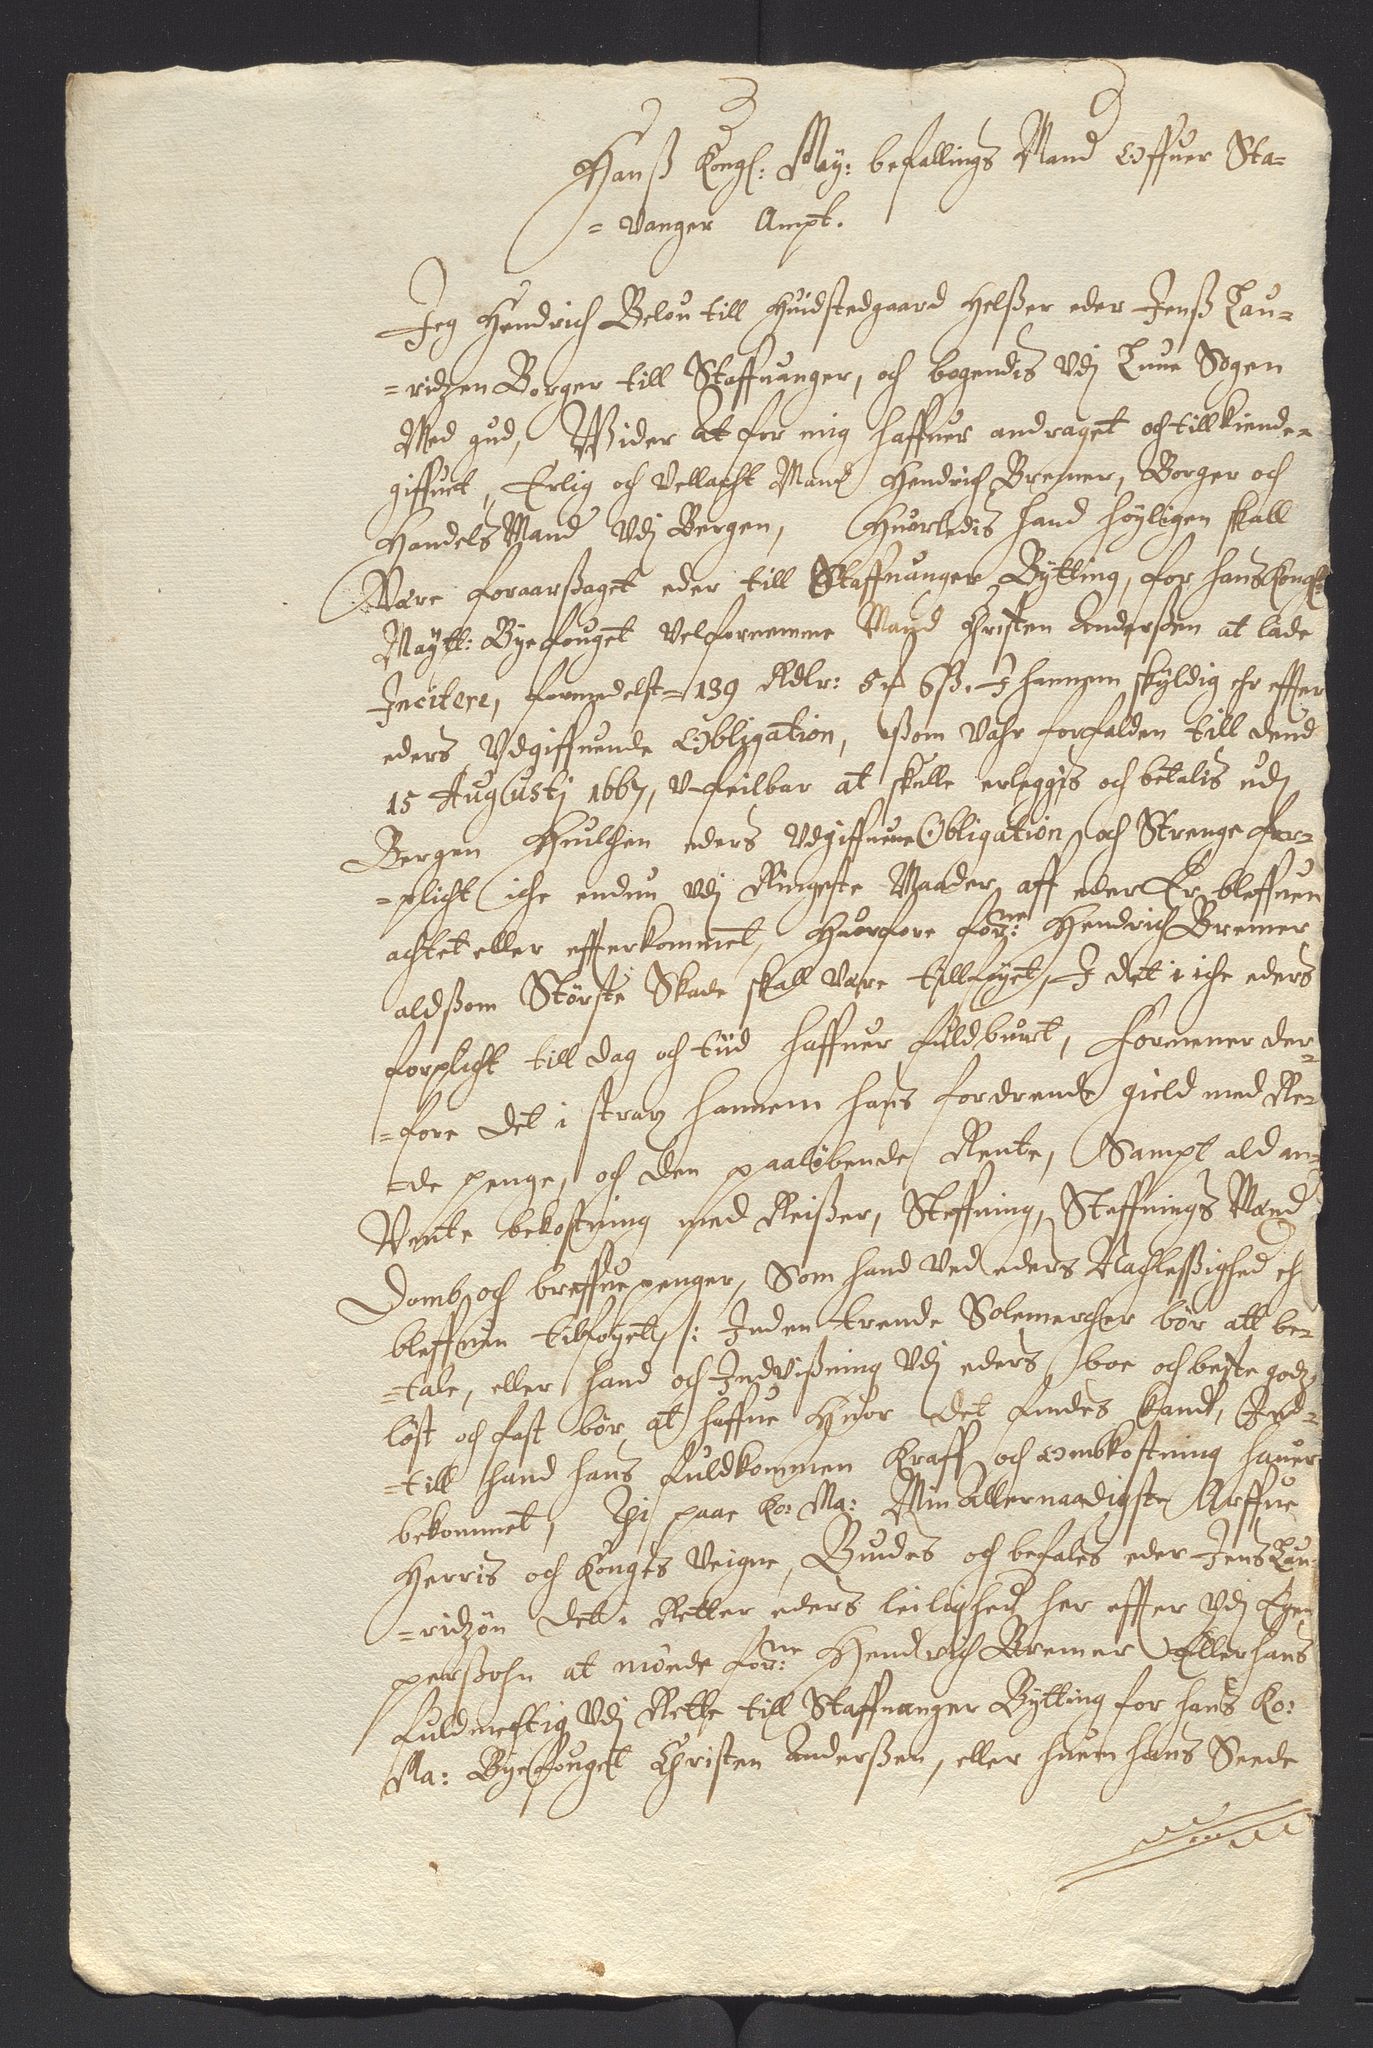 Hanß Kongl: May: befallings Mand Offuer Sta-
= vanger Ampt.
Jeg Hendrich Belou till Huidstedgaard Helßer eder Jenß Lau-
= ridzen Borger till Staffuanger, och bogendis Vdj Lune Sogen
Med gud, Wider at for mig haffuer andraget och tillkiende-
giffuet, Erlig och Vellacht Mand Hendrich Bremer, Borger och
Handels Mand Vdj Bergen, Huorledis hand höyligen skall
Være foraarßaget eder till Staffuanger Bytting, for hans Kongl:
Maytt: Byefouget Velfornemme Mand Christen Anderßen at lade
Incitere, formedelst 139 Rdlr: 5 6 ß. I hannem skyldig ehr effter
eders Vdgiffuende Obligation, ßom Vahr forfalden till dend
15 Augustj 1667, V-feilbar at skulle erleggis och betalis udj
Bergen Huilchen eders Vdgiffuene Obligation och Strenge for-
= plicht iche endnu Vdj Ringeste Maader aff eder Er bleffuen
achtet eller effterkommet, Huorfore for:ne Hendrich Bremer
aldßom Störste Skade skall Være tillföyet, I det i iche eders
forplicht till dag och tiid haffuer fuldburt, Formener der-
= fore det i strax hannem hans fordrende gield med Re-
= de penge, och den paalöbende Rente, Sampt ald an-
Vente bekostning med Reißer, Steffning, Steffnings Mænd
Domb och breffue penger, Som hand Ved eders Nachleßighed er
bleffuen tilföyet /: Inden trende Solemercher bör att be-
= tale, eller hand och Indvißning Vdj eders boe och beste godz,
löst och fast bör at haffue Huor det findes kand, Ind-
= till hand hans fuldkommen Kraff och ombkostning hauer
bekommet, Thi paae Ko: Ma: Min Allernaadigste Arffue
Herris och Kongis Veigne, Biudes och befales eder Jens Lau-
= ridzön det i Retter eders leilighed her effter Vdj Egen
perßohn at möede for:ne Hendrich Bremer Eller hans
fuldmechtig Vdj Rette till Staffuanger Bytting for hans Ko:
Ma: Byefouget Christen Anderßen, eller huem hans Seede